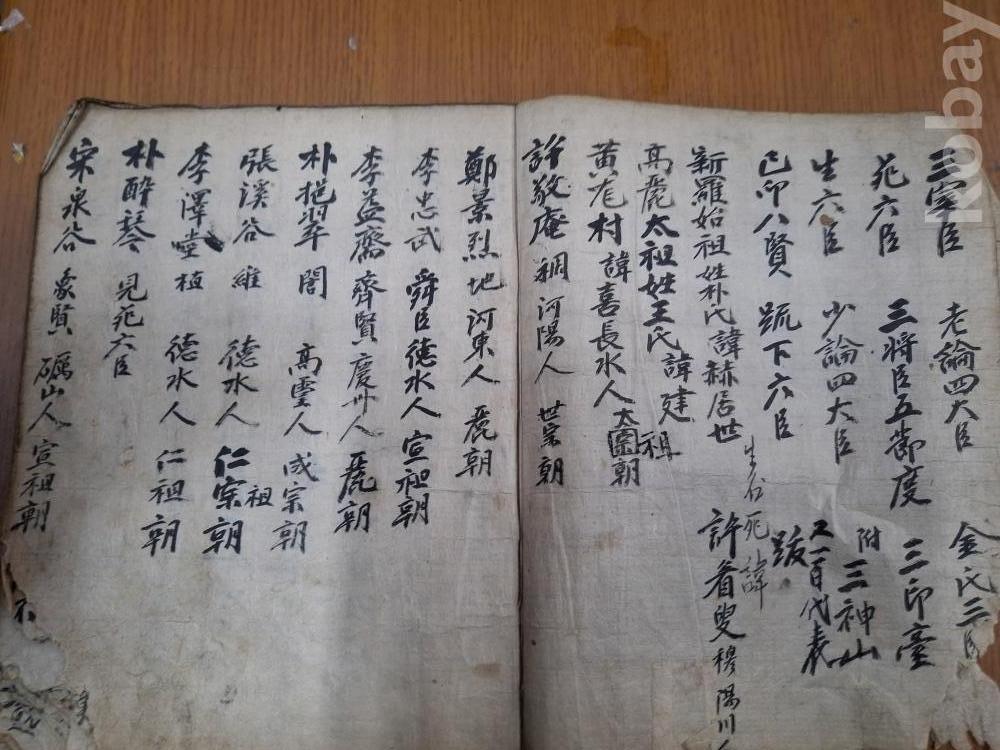 三宰臣 老論四大臣 金氏三臣
死六臣 三將臣五節度 三印臺
生六臣 少論四大臣 附三神山
己卯八賢 䟽下六臣 跋 又一百代表
生名 死諱
新羅始祖姓朴氏諱赫居世 許眉叟穆陽川人
高麗太祖姓王氏諱建
黃尨村諱喜長水人 太宗朝 祖
許敬庵稠河陽人 世宗朝
鄭景烈地河東人 麗朝
李忠武舜臣德水人 宣祖朝
李益齋齊賢慶州人 麗朝
朴挹翠誾高靈人 成宗朝
張溪谷維德水人 仁宗朝 祖
李澤堂植德水人 仁祖朝
朴醉琴見死六臣
宋泉谷象賢礪山人 宣祖朝
Kobay